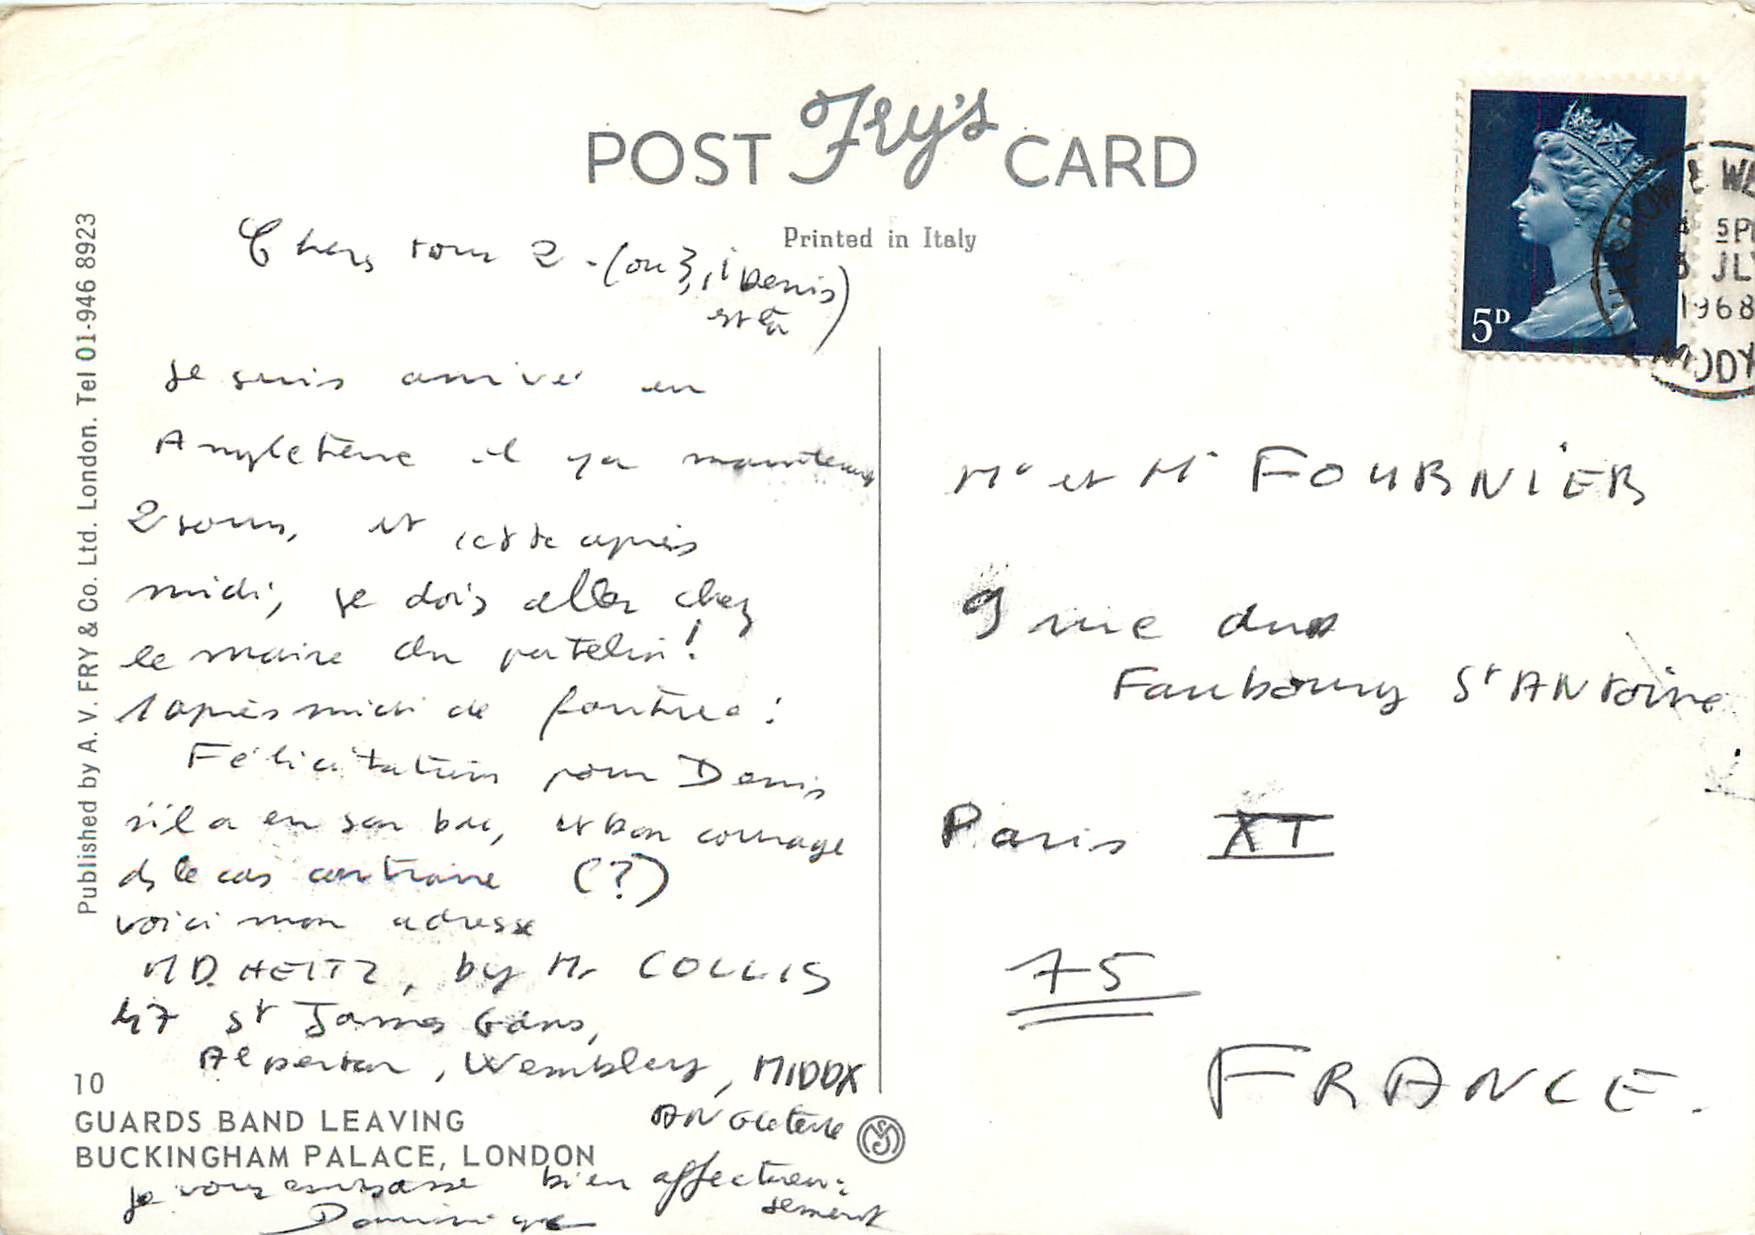 POST Fry's CARD
Printed in Italy
Published by A. V. FRY & Co. Ltd. London. Tel 01-946 8923
Chers tous 2 - (ou 3, si Denis
est là)
Je suis arrivé en
Angleterre il y a maintenant
2 jours, et cette après
midi, je dois aller chez
le maire du patelin!
l'après midi de
Félicitations pour Denis
s'il a eu son bac, et bon courage
ds le cas contraire (?)
voici mon adresse
M D. HEITZ, by Mr COLLIS
47 St James Gdns,
Alperton, Wembley, MIDDX
ANGleterre
Je vous embrasse bien affectueu-
sement
Dominique
10
GUARDS BAND LEAVING
BUCKINGHAM PALACE, LONDON
5D
HARROW & WE
5 PM
JLY
1968
Me et Mr FOURNIER
9 rue du
Faubourg St ANtoine
Paris XI
75
FRANCE.